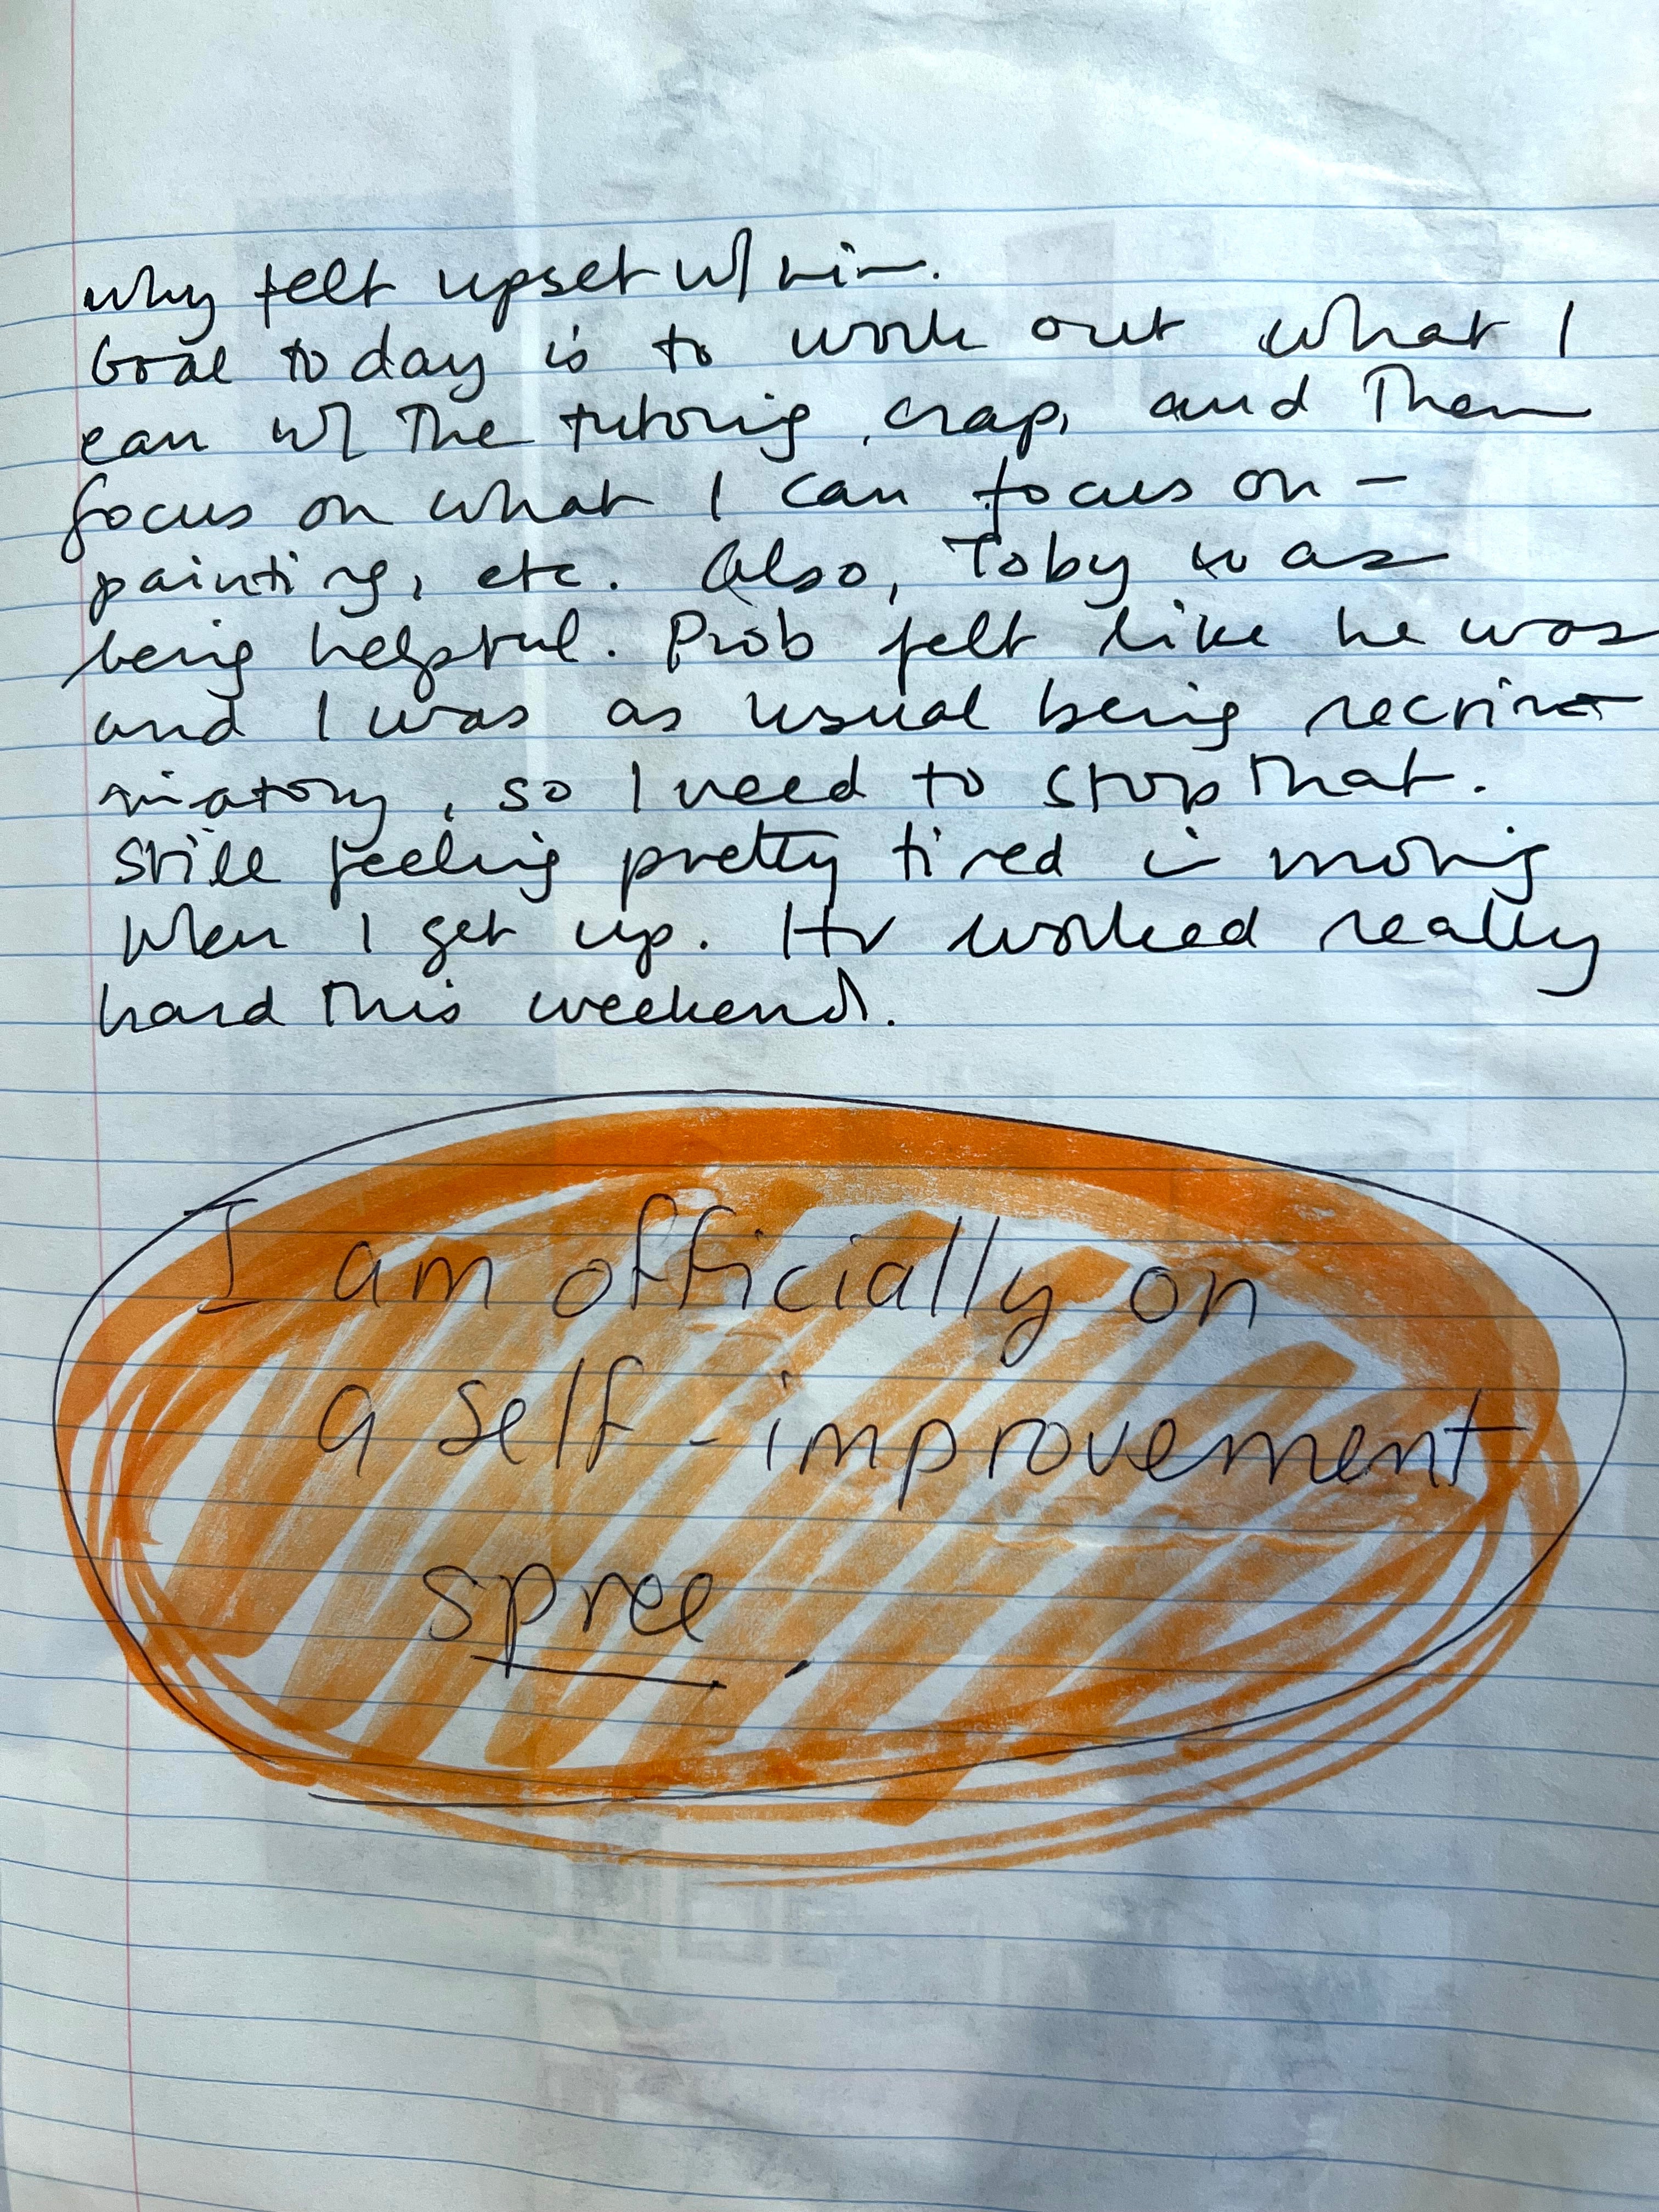 why felt upset w/ him.
Goal today is to work out what I
can w/ the tutoring crap, and then
focus on what I can focus on –
painting, etc. Also, Toby was
being helpful. Prob felt like he was
and I was as usual being recrim-
inatory, so I need to stop that.
Still feeling pretty tired in morning
when I get up. Hv worked really
hard this weekend.
I am officially on
a self-improvement
spree.